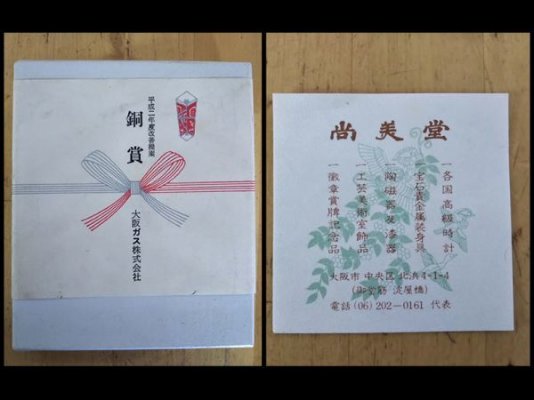 平成二年度改善提案
銅賞
大阪ガス株式会社
尚美堂
一各国高級時計
一宝石貴金属装身具
一陶磁器及漆器
一工芸美術室飾品
一徽章賞牌記念品
大阪市中央区北浜4-1-4
(御堂筋 淀屋橋)
電話(06)202-0161 代表